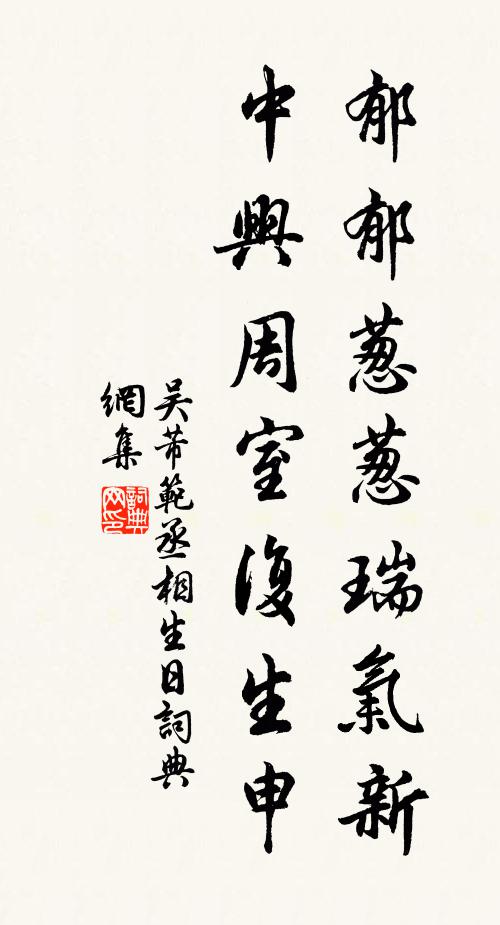 郁郁葱葱瑞氣新
中興周室復生申
吴芾範丞相生日詞典
網集
詞典
网印